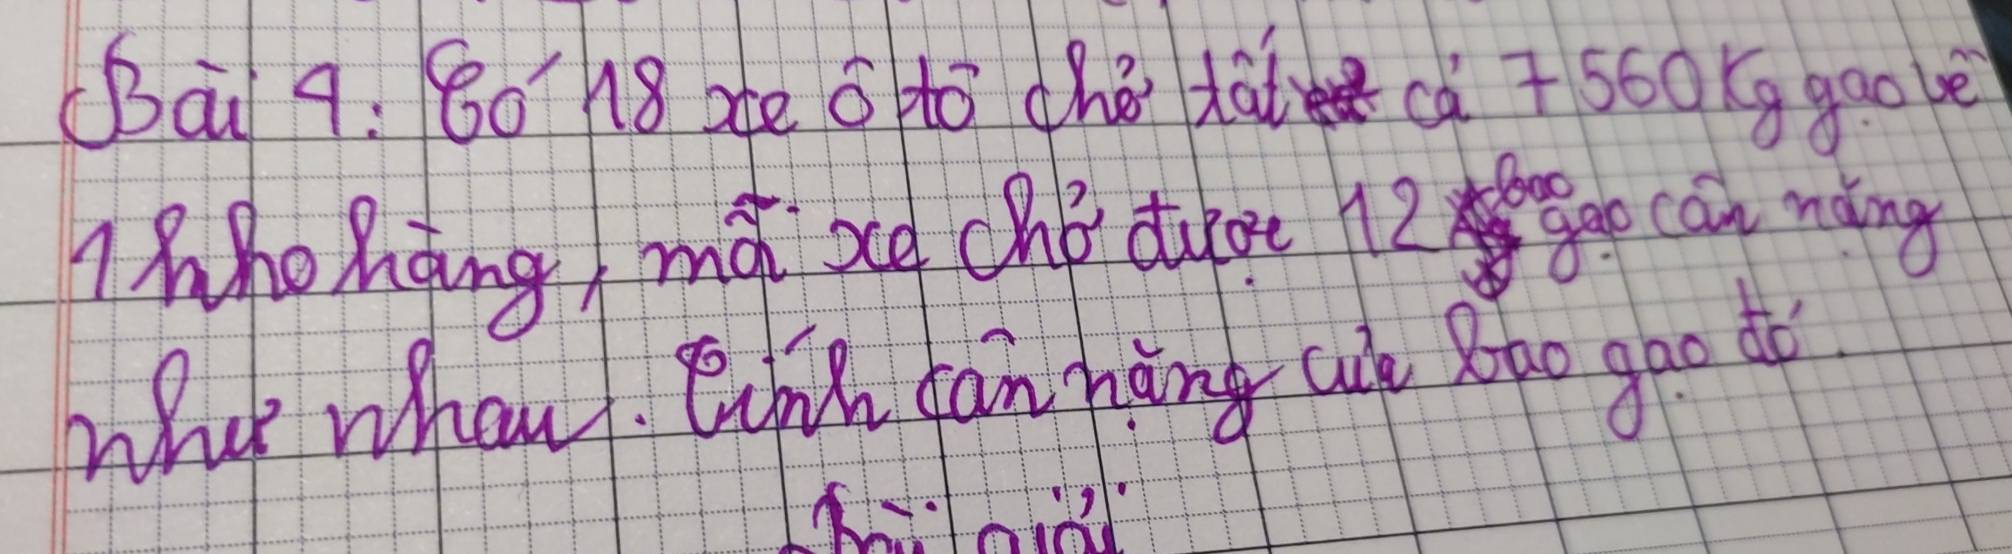 Bài 4: Có 18 xe ô tô chở tất cả 7560 kg gạo về
1 kho hàng, mỗi xe chở được 12 bao gạo cân nặng
như nhau. Tính cân nặng của bao gạo đó.
Bài giải